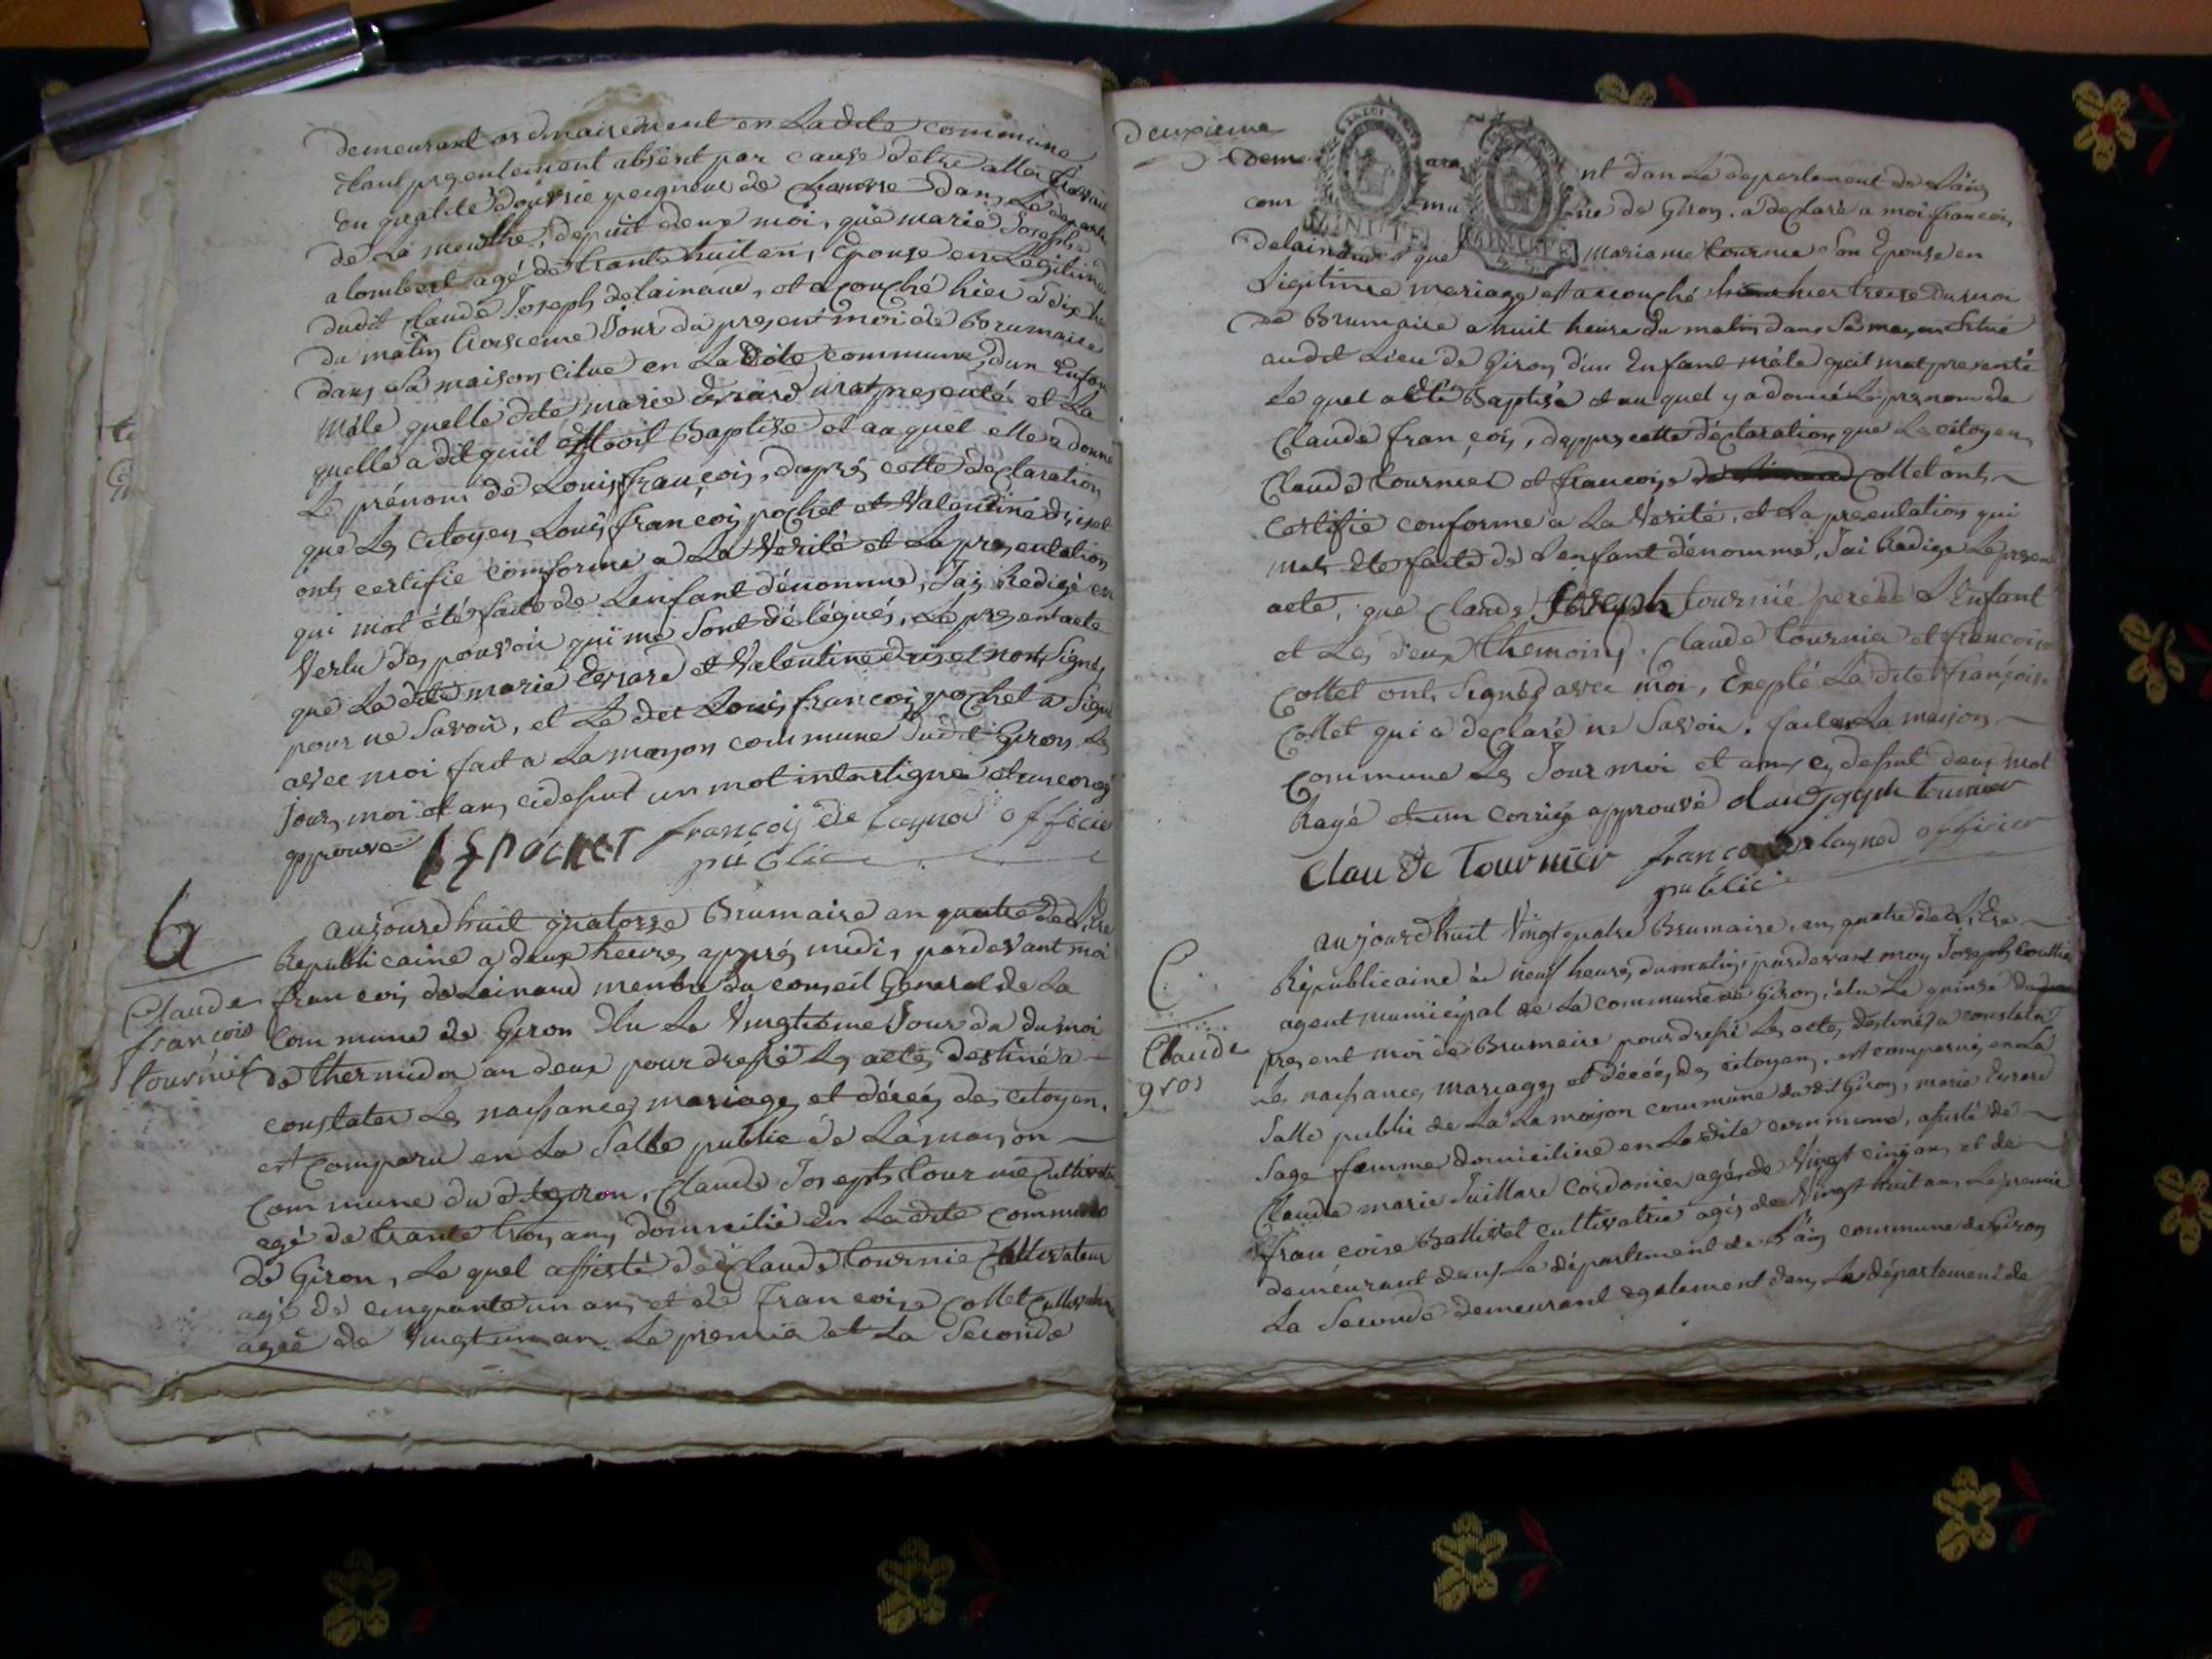 demeurant ordinairement en Ladite commune
Etant presentement absent par cause detre aller
En qualité douvrie peigneur de chanvre Dans Le
de La meurthe, depuit deux moi, que marie Joseph
alombert agé de trante huit ans, Epouse en Legitime
dudit Claude Joseph delainaud, et acouché hier a dix
du matin troisieme Jour du present moi de Brumaire
dans Sa maison, citue en La dite commune, dun Enfan
Mâle quelle dite marie Evrard mat presenté et La
quelle a dit quil Baptisé et auquel elle a donné
Le prénom de Louis françois, daprés cette declaration
que Les Citoyen Louis françois pochet et Valentine
ont certifie comforme a La Verité et La presentation
qui mat été faite de Lenfant dénommé, Jais Redigé en
Vertu des pouvoir qui me Sont délégués, Le present acte
que La dite marie Evrard et Valentine nont Signés
pour ne Savoir, et Le dit Louis françois pochet a Signé
avec moi fait a La mayson commune dudit Giron Les
Jours, moi et ans cidesut un mot interligne et un corigé
approuvé LF POCHET françois de Laynod officier
publice
6
aujourdhuit quatorze Brumaire an quatre de L'Ere
Republicaine a deux heures apprés midi, pardevant moi
Claude
françois
tournier
françois deLainaud menbre du conseil General de La
Commune de Giron Elu Le Vingtieme Jour da du moi
de thermidor an deux pour dressé Les actes destiné a
constater Les naissances mariages et décés des citoyen,
est comparu en La Salle public de La mayson
Commune du dit giron, Claude Joseph tournié Cultivateur
agé de trante trois ans domicilié en Ladite commune
de Giron, Le quel assisté de Claude tournie Cultivateur
agé de cinquante un ans et de francoise Collet Cultivatrice
agée de Vingt un an Le premier et La Seconde
Deuxieme
deme nt dan Le departement de L'ain
com mu ne de Giron, a declaré a moi francois
delainaud que mariane tournie Son Epouse en
Légitime mariage est accouché hier treize du moi
de Brumaire a huit heure du matin dans Sa mayson Situé
audit Lieu de Giron d'un Enfant mâle quil mat presenté
Le quel a été Baptisé et au quel y a donné Le prenom de
Claude françois, dapprés cette déclaration que Le citoyen
Claude tournier et francoise Collet ont
Certifie conforme a La Verité, et La presentation qui
mat été faite de L'enfant dénommé, J'ai Redigé Le present
acte, que Claude Joseph tournié pere de L'Enfant
et Les deux themoins Claude tournier et francoise
Collet ont Signés avec moi, Exepté La dite françoise
Collet qui a declaré ne Savoir. fait en La maison
Commune Les Jour moi et ans cy dessut deux mot
Rayé et un corrigé approuvé claude joseph tournier
Claude Tournier françois de laynod officier
public
C.
Claude
gros
aujourdhuit Vingt quatre Brumaire, an quatre de L'Ere
Républicaine à neuf heures du matin, pardevant moy Joseph
agent municipal de La commune de Giron, élu Le quinze du
present moi de Brumaire pour dressé Les actes destinés a constater
Les naissances mariages et décés des citoyens, est comparue en La
Salle public de La La maison commune du dit Giron, marie Evrard
Sage femme domiciliée en La dite commune, assisté de
Claude marie Juillard Cordonier agés de Vingt cinq ans et de
francoise Ballivet cultivatrie agés de Vingt huit ans Le premie
demeurant dans Le département de L'ain commune de Giron
La Seconde demeurant egalement dans Le département de